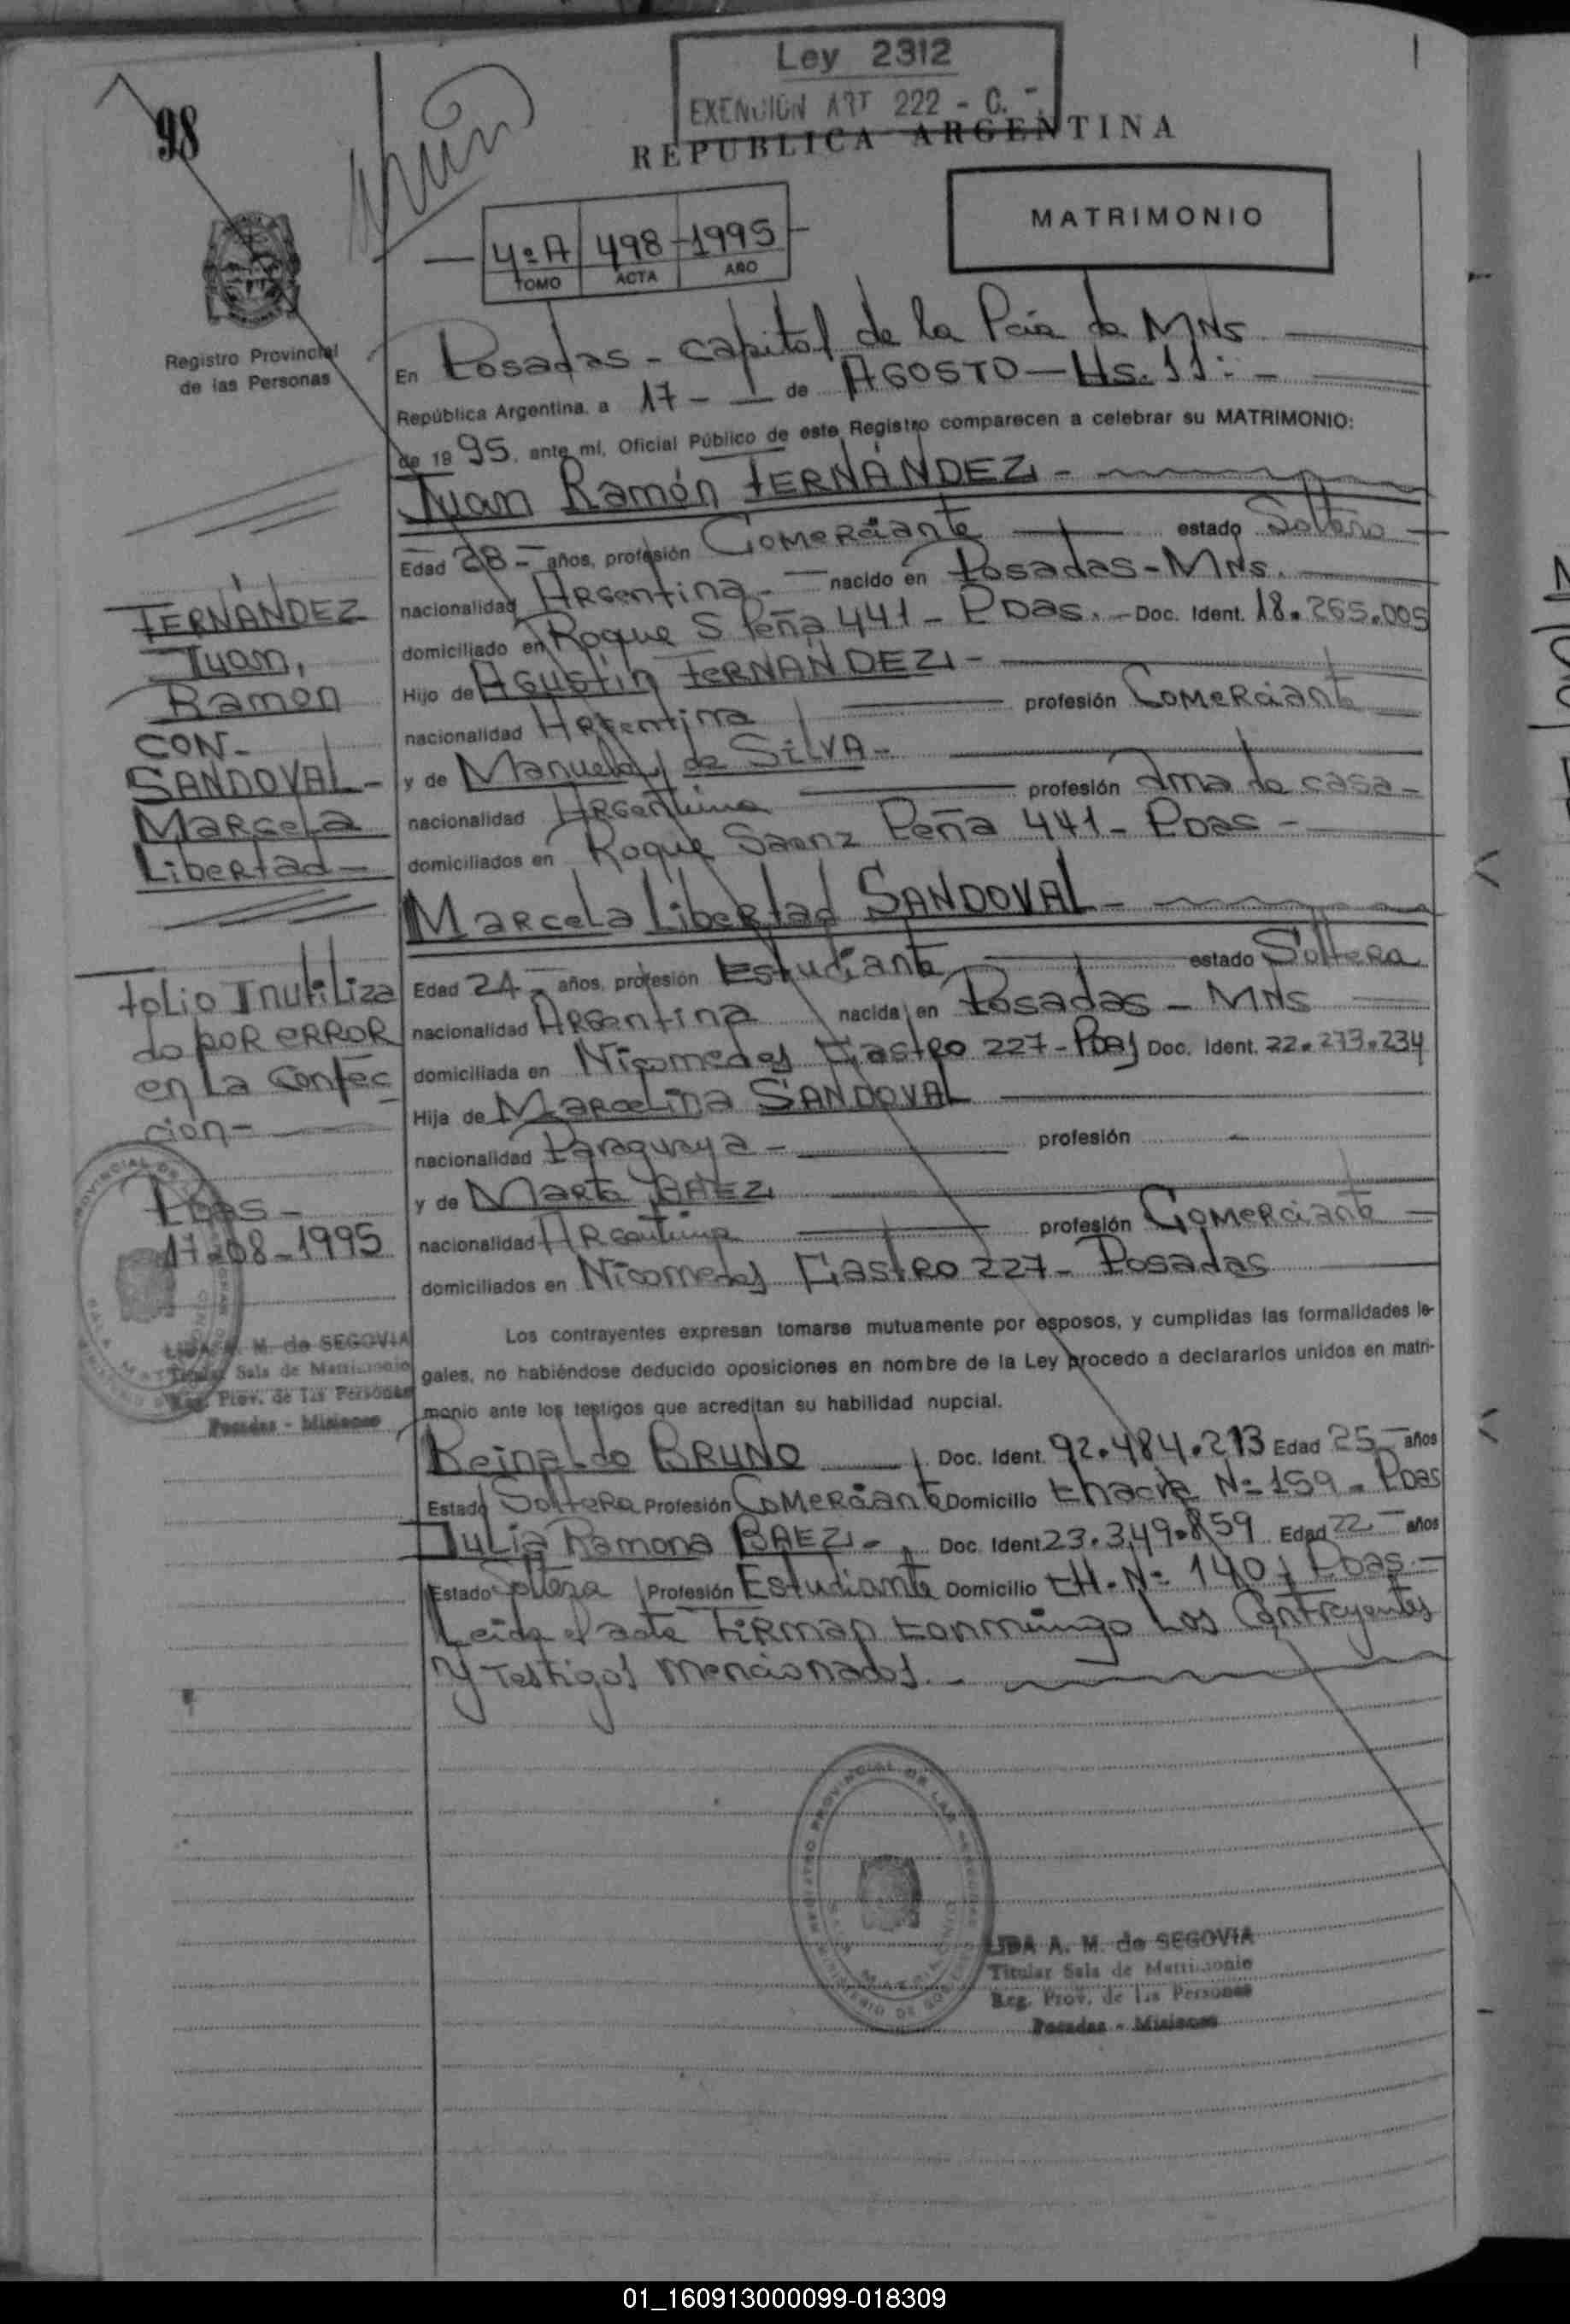 Ley 2312
EXENCION ART 222 - C. -
REPUBLICA ARGENTINA
98
MATRIMONIO
4º A 498 - 1995
TOMO ACTA AÑO
Registro Provincial
de las Personas
En Posadas - capital de la Pcia de MNS
República Argentina, a 17 - de AGOSTO - Hs. 11: -
de 1995, ante mí, Oficial Público de este Registro comparecen a celebrar su MATRIMONIO:
Juan Ramón FERNÁNDEZ -
Edad 28 - años, profesión Comerciante estado Soltero
nacionalidad Argentina - nacido en Posadas - MNS.
domiciliado en Roque S Peña 441 - Pdas. - Doc. Ident. 18.265.005
Hijo de AGUSTÍN FERNÁNDEZ -
nacionalidad Argentina profesión Comerciante
y de Manuela de SILVA -
nacionalidad Argentina profesión Ama de casa -
domiciliados en Roque Saenz Peña 441 - Pdas -
Marcela Libertad SANDOVAL -
Edad 24 - años, profesión Estudiante estado Soltera
nacionalidad Argentina nacida en Posadas - MNS
domiciliada en Nicomedes Castro 227 - Pdas Doc. Ident. 22.273.234
Hija de Marcelina SANDOVAL
nacionalidad Paraguaya - profesión -
y de Marta BAEZ
nacionalidad Argentina profesión Comerciante
domiciliados en Nicomedes Castro 227 - Posadas
Los contrayentes expresan tomarse mutuamente por esposos, y cumplidas las formalidades le-
gales, no habiéndose deducido oposiciones en nombre de la Ley procedo a declararlos unidos en matri-
monio ante los testigos que acreditan su habilidad nupcial.
Reinaldo BRUNO Doc. Ident. 92.484.213 Edad 25 - años
Estado Soltera Profesión Comerciante Domicilio Chacra Nº 159 - Pdas
Julia Ramona BAEZ - Doc. Ident 23.349.859 Edad 22 - años
Estado Soltera Profesión Estudiante Domicilio CH. Nº 140 - Pdas. -
Leida el acta Firman conmigo Los Contrayentes
y Testigos mencionados. -
FERNÁNDEZ
Juan,
Ramón
CON -
SANDOVAL -
Marcela
Libertad -
Folio Inutiliza
do por error
en La Confec
cion -
Pdas -
17-08-1995
LIDA A. M. de SEGOVIA
Titular Sala de Matrimonio
Reg. Prov. de las Personas
Posadas - Misiones
LIDA A. M. de SEGOVIA
Titular Sala de Matrimonio
Reg. Prov. de las Personas
Posadas - Misiones
01_160913000099-018309